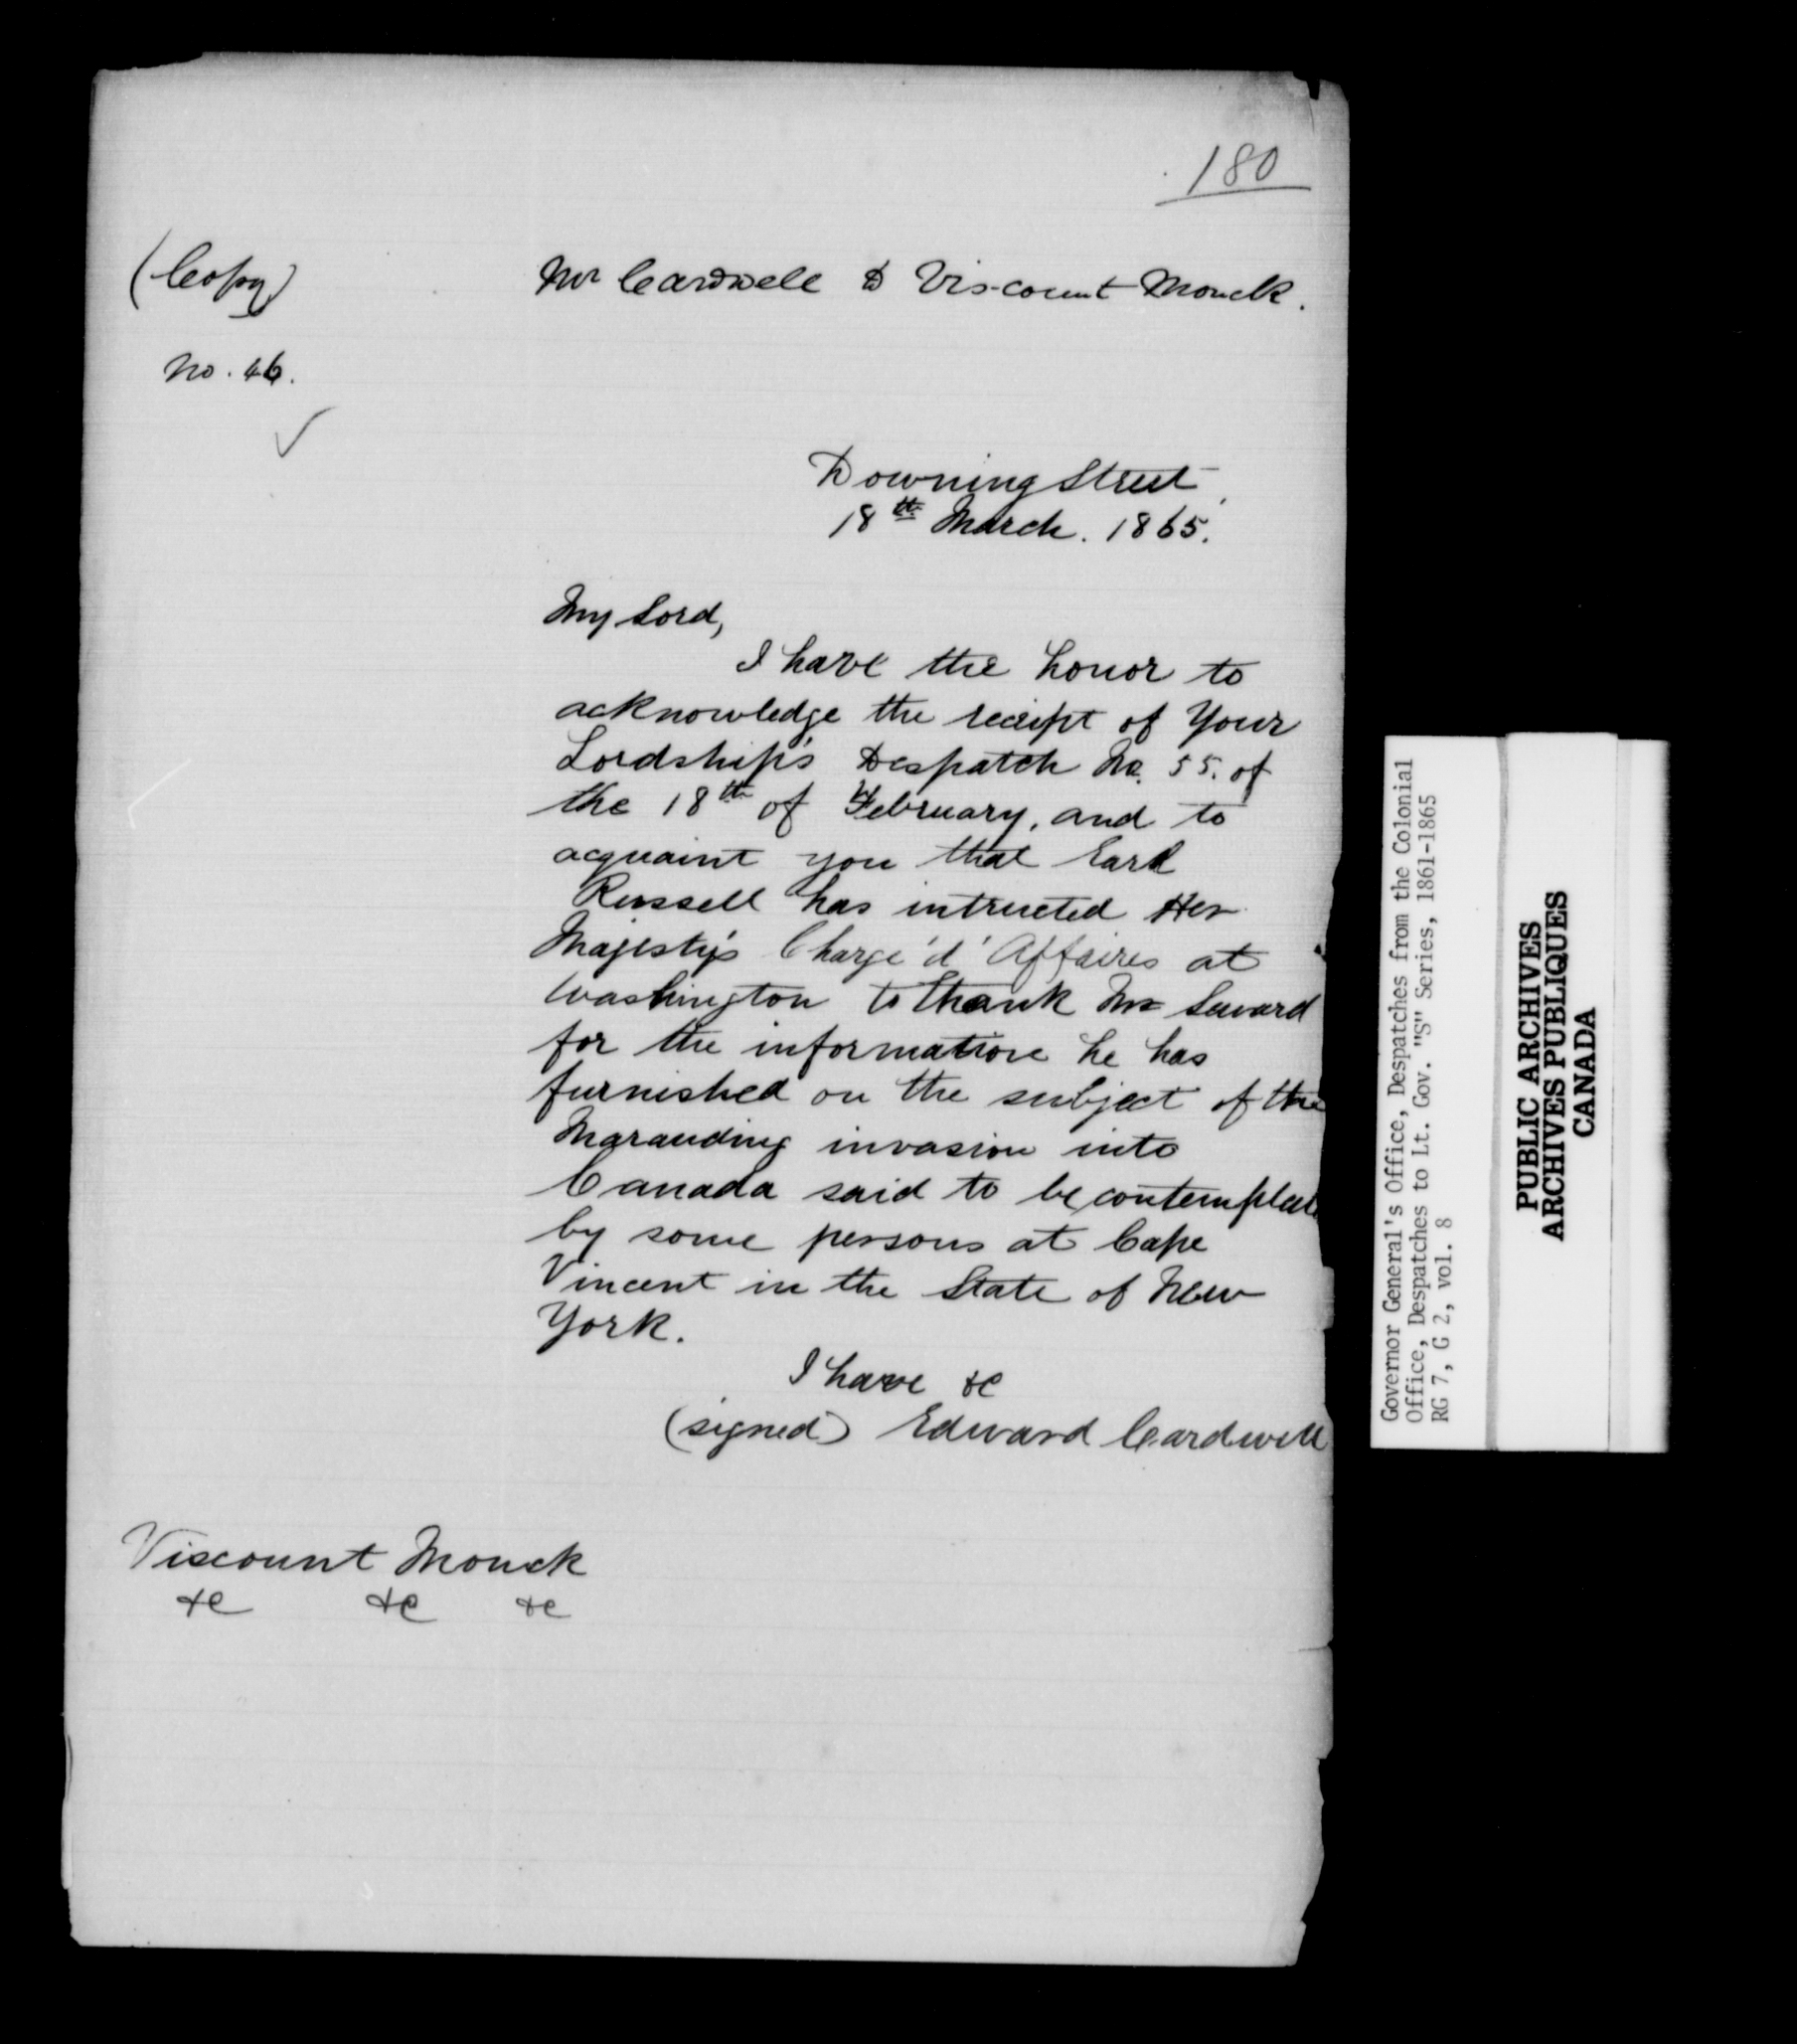 180
(Copy)
Mr Cardwell to Viscount Monck.
No. 46.
Downing Street
18th March. 1865.
My Lord,
I have the honor to
acknowledge the receipt of Your
Lordship's Despatch No. 55. of
the 18th of February, and to
acquaint you that Earl
Russell has intructed Her
Majesty's Chargé d'Affaires at
Washington to thank Mr Seward
for the information he has
furnished on the subject of the
Marauding invasion into
Canada said to be contemplat
by some persons at Cape
Vincent in the State of New
York.
I have &c
(signed) Edward Cardwell
Viscount Monck
&c &c &c
Governor General's Office, Despatches from the Colonial
Office, Despatches to Lt. Gov. "S" Series, 1861-1865
RG 7, G 2, vol. 8
PUBLIC ARCHIVES
ARCHIVES PUBLIQUES
CANADA